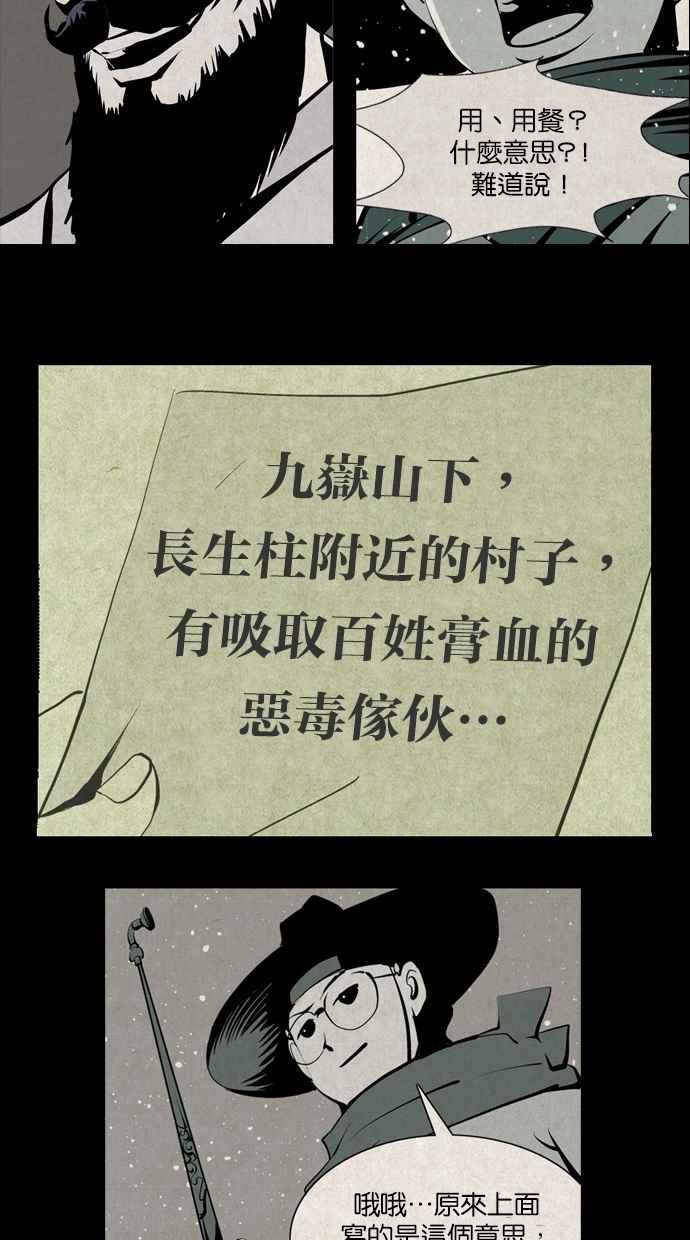 用、用餐？
什麼意思？！
難道說！
九嶽山下，
長生柱附近的村子，
有吸取百姓膏血的
惡毒傢伙⋯
哦哦⋯原來上面
寫的是這個意思，